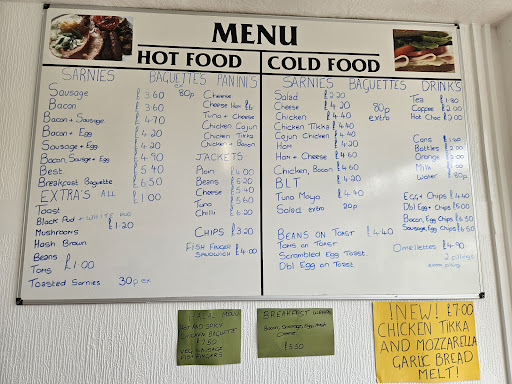 MENU
HOT FOOD
SARNIES BAGUETTE'S PANINIS
Sausage £3.60 80p
Bacon £3.60
Bacon + Sausage £4.70
Bacon + Egg £4.20
Sausage + Egg £4.20
Bacon, Sausage + Egg £4.90
Best £5.40
Breakfast Baguette £6.50
EXTRA'S ALL £1.00
Toast
Black Pud + WHITE PUD £1.20
Mushrooms
Hash Brown
Beans
Toms £1.00
Toasted Sarnies 30p ex
Cheese
Cheese Ham
Tuna + Cheese
Chicken Cajun
Chicken Tikka
Chicken + Bacon
JACKETS
Plain £4.00
Beans £5.20
Cheese £5.40
Tuna £5.60
Chilli £6.20
CHIPS £3.20
FISH FINGER
SANDWICH £4.00
COLD FOOD
SARNIES BAGUETTES DRINKS
Salad £2.20
Cheese £4.20 80p
Chicken £4.40 extra
Chicken Tikka £4.40
Cajun Chicken £4.40
Ham £4.20
Ham + Cheese £4.60
Chicken, Bacon £4.60
BLT
Tuna Mayo £4.40
Salad extra 20p
BEANS ON TOAST £4.40
Toms on Toast
Scrambled Egg Toast
Dbl Egg on Toast
Tea £1.80
Coffee £2.00
Hot Choc £2.00
Cans
Bottles
Orange
Milk
Water 80p
EGG + Chips £4.40
Dbl Egg + Chips £5.00
Bacon, Egg Chips £6.50
Sausage, Egg Chips £6.50
Omelettes £4.90
2 fillings
HALAL MENU
HOT AND SPICY
CHICKEN BAGUETTE
£7.50
VEG SAUSAGE
FISH FINGERS
BREAKFAST
Bacon, Sausage, Egg, Hash
Cheese
!NEW! £7.00
CHICKEN TIKKA
AND MOZZARELLA
GARLIC BREAD
MELT!